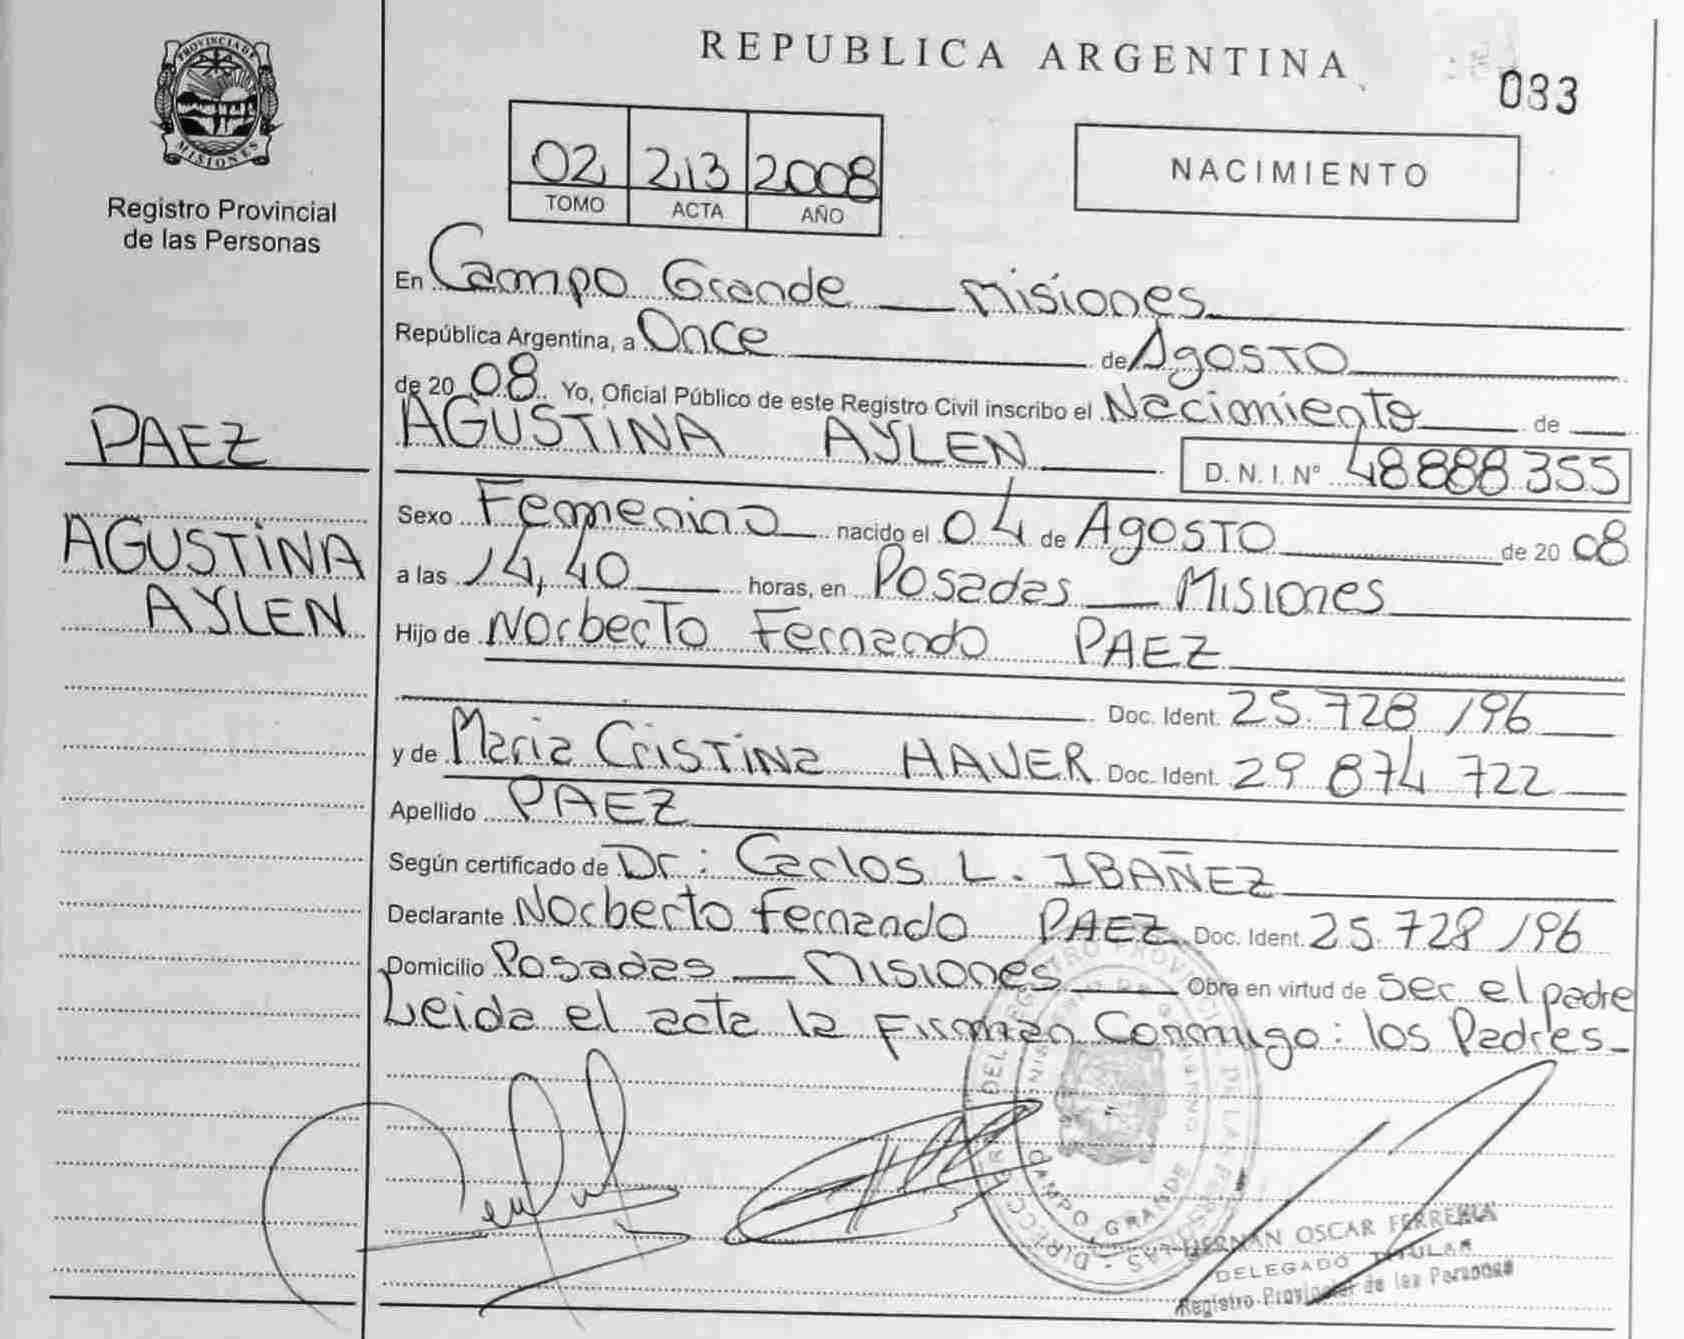 REPUBLICA ARGENTINA
033
PROVINCIA DE
MISIONES
Registro Provincial
de las Personas
02 213 2008
TOMO ACTA AÑO
NACIMIENTO
En Campo Grande — Misiones
República Argentina, a Once de Agosto
de 20 08 Yo, Oficial Público de este Registro Civil inscribo el Nacimiento de
PAEZ
AGUSTINA AYLEN D. N. I. N° 48.888.355
AGUSTINA
AYLEN
Sexo Femenino nacido el 04 de Agosto de 20 08
a las 14,40 horas, en Posadas — Misiones
Hijo de Norberto Fernando PAEZ
Doc. Ident. 25.728.196
y de Maria Cristina HAUER Doc. Ident. 29 874 722
Apellido PAEZ
Según certificado de Dr: Carlos L. IBAÑEZ
Declarante Norberto Fernando PAEZ Doc. Ident. 25.728.196
Domicilio Posadas — Misiones Obra en virtud de Ser el padre
Leida el acta la Firman Conmigo: los Padres
CAMPO GRANDE
HERNAN OSCAR FERREIRA
DELEGADO TITULAR
Registro Provincial de las Personas